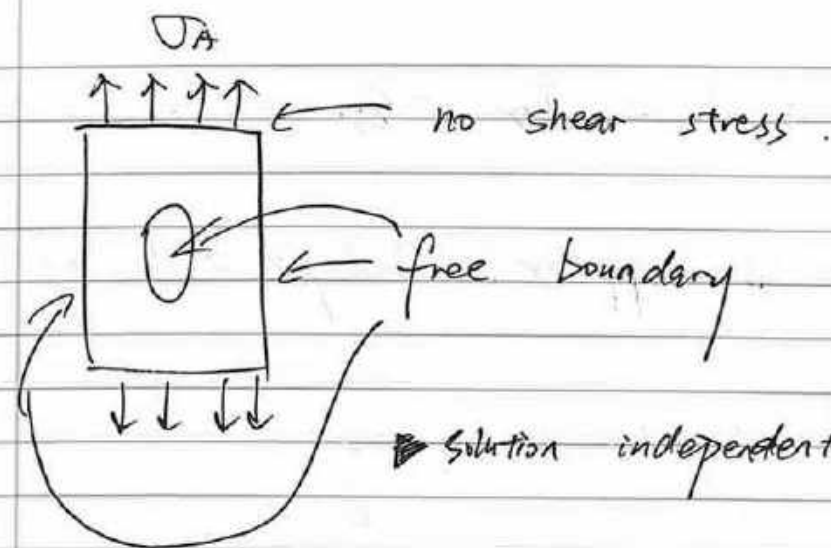 σA
no shear stress.
free boundary.
▶ solution independent